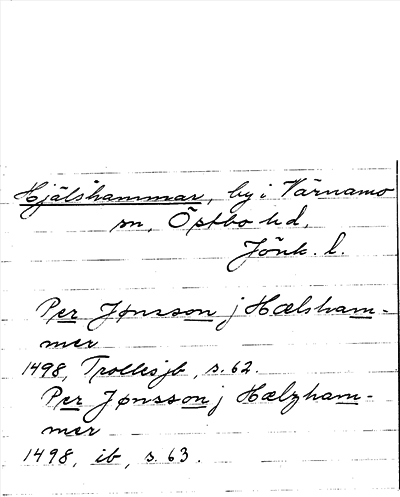 Hjälshammar, by i Värnamo
sn, Östbo hd,
Jönk. l.
Per Jønsson j Hælsham-
mer
1498, Trollesjb, s. 62.
Per Jønsson j Hælzham-
mer
1498, ib, s. 63.